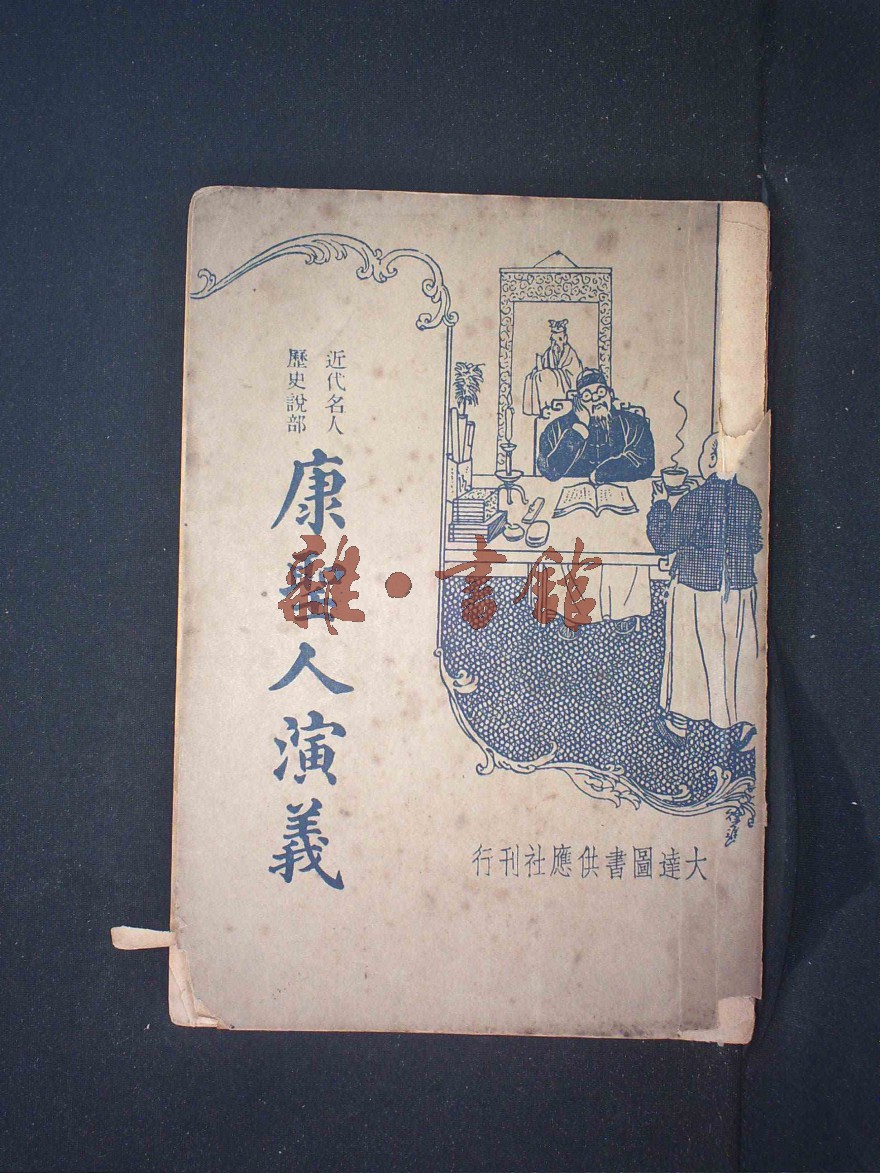 近代名人
歷史說部
康聖人演義
大達圖書供應社刊行
雜·書館